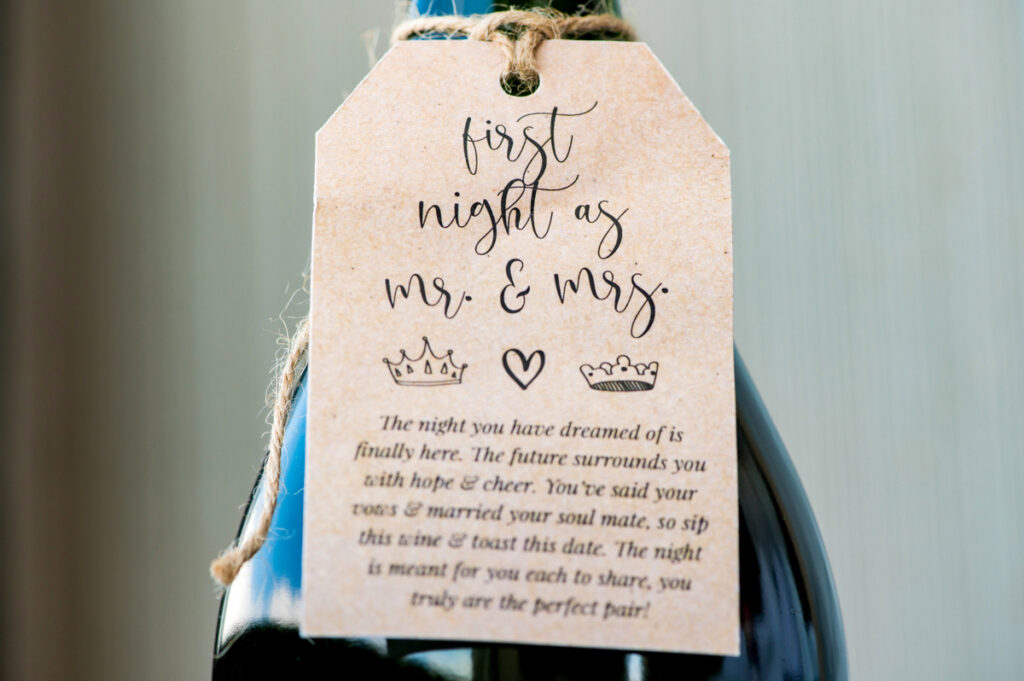 first
night as
mr. & mrs.
The night you have dreamed of is
finally here. The future surrounds you
with hope & cheer. You've said your
vows & married your soul mate, so sip
this wine & toast this date. The night
is meant for you each to share, you
truly are the perfect pair!